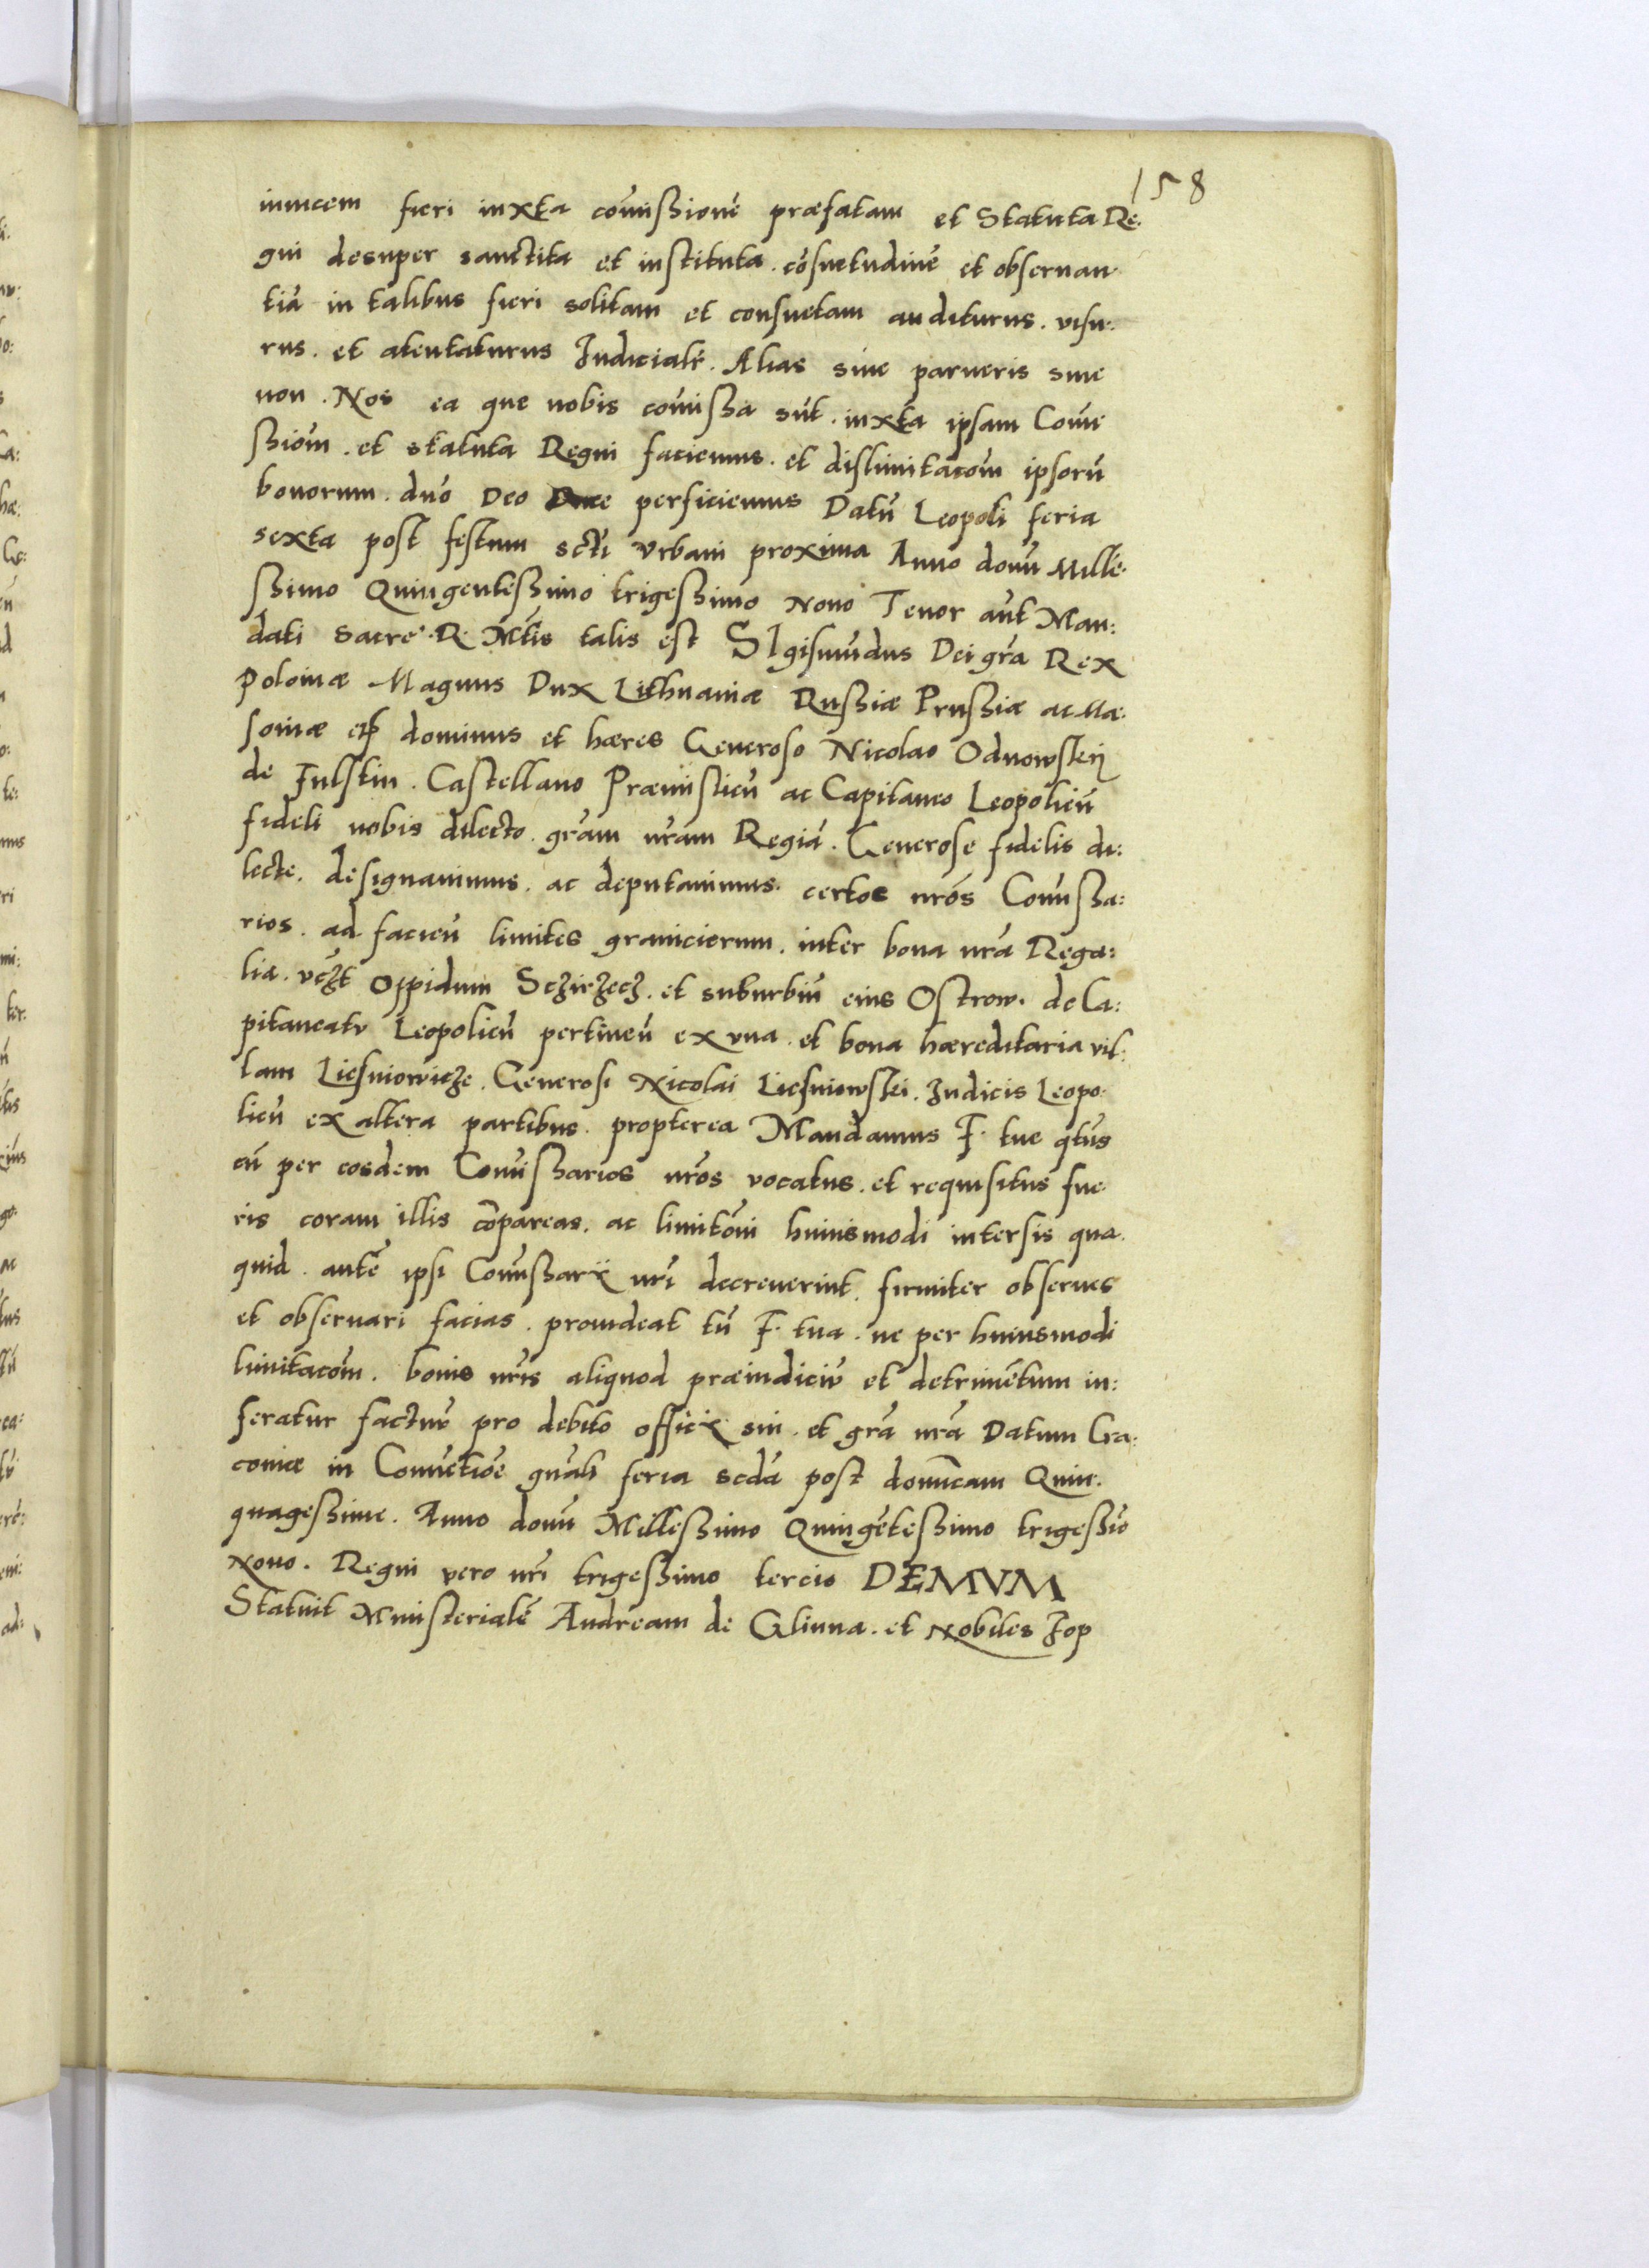 158
inuicem fieri iuxta comissione præfatam et Statuta Re.
gni desuper sanctita et instituta. cosuetudine et obseruan.
tia in talibus fieri solitam et consuetam auditurus. visu.
rus. et atentaturus Iudicialr. Alias siue parueris siue
non. Nos ea que nobis comissa sut. iuxta ipsam Comi
ssiom. et statuta Regni faciemus. et dislimitacom ipsoru
bonorum. duo Deo Duce perficiemus Datu Leopoli feria
sexta post festum scti Vrbani proxima Anno domi Mille.
ssimo Quingentessimo trigessimo Nono Tenor aut Man:
dati Sacre R. Mtis talis est SIgismudus Dei gra Rex
Poloniæ Magnus Dux Lithuaniæ Russiæ Prussiæ ac Ma.
soniæ etc dominus et hæres Generoso Nicolao Odnowskÿ
de Fulstin. Castellano Præmislien ac Capitaneo Leopolien
fideli nobis dilecto. gram nram Regia. Generose fidelis di:
lecte. designauimus. ac deputauimus. certos nros Comissa:
rios. ad facien limites graniciorum. inter bona nra Rega:
lia. vczt Oppidum Sczirzecz. et suburbiu eius Ostrow. de Ca:
pitaneatu Leopolien pertinen ex vna. et bona hæreditaria vil:
lam Liesniowicze. Generosi Nicolai Liesniowski. Iudicis Leopo.
lien ex altera partibus. propterea Mandamus F. tue qtus
cu per eosdem Comissarios nros vocatus. et requisitus fue.
ris coram illis copareas. ac limitoni huiusmodi intersis qua.
quid. aute ipsi Comissarij nri decreuerint. firmiter obserues
et obseruari facias. prouideat tn F. tua. ne per huiusmodi
limitacom. bonis nris aliquod præiudiciu et detrimetum in:
feratur facturus pro debito officij sui. et gra nra Datum Cra:
couiæ in Conuetioe gnali feria scda post domicam Quin.
quagessime. Anno domi Millessimo Quingetessimo trigessio
Nono. Regni vero nri trigessimo tercio DEMVM
Statuit Ministeriale Andream de Glinna. et Nobiles Iop